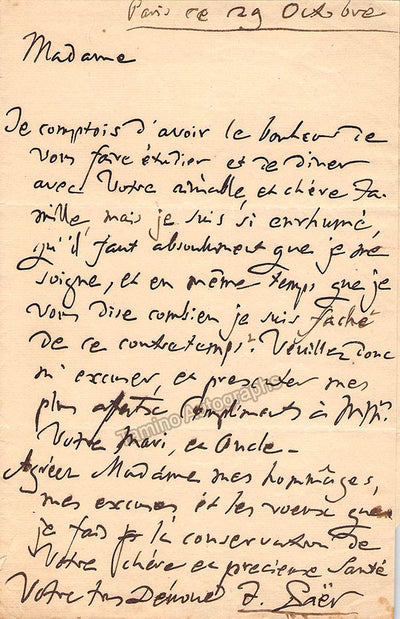 Paris ce 29 Octobre
Madame
Je comptois d'avoir le bonheur de
vous faire étudier et de diner
avec Votre aimable, et chère Fa-
mille, mais je suis si enrhumé,
qu'il faut absolument que je me
soigne, et en même temps que je
vous dise combien je suis faché
de ce contretemps. Veuillez donc
m'excuser, et presenter mes
plus Compliments à MM.
Votre Mari, et Oncle-
Agréez Madame mes hommâges,
mes excuses et les voeux que
je fais pr la conservation de
Votre chère et precieuse Santé
Votre très Dévoué F. Paër
Tamino Autographs